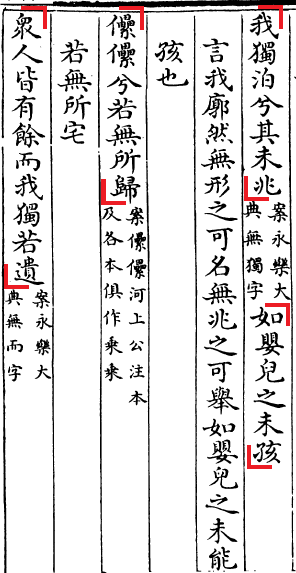 我獨泊兮其未兆案永樂大典無獨字如嬰兒之未孩
言我廓然無形之可名無兆之可舉如嬰兒之未能
孩也
儽儽兮若無所歸案儽儽河上公注本及各本俱作乘乘
若無所宅
衆人皆有餘而我獨若遺案永樂大典無而字